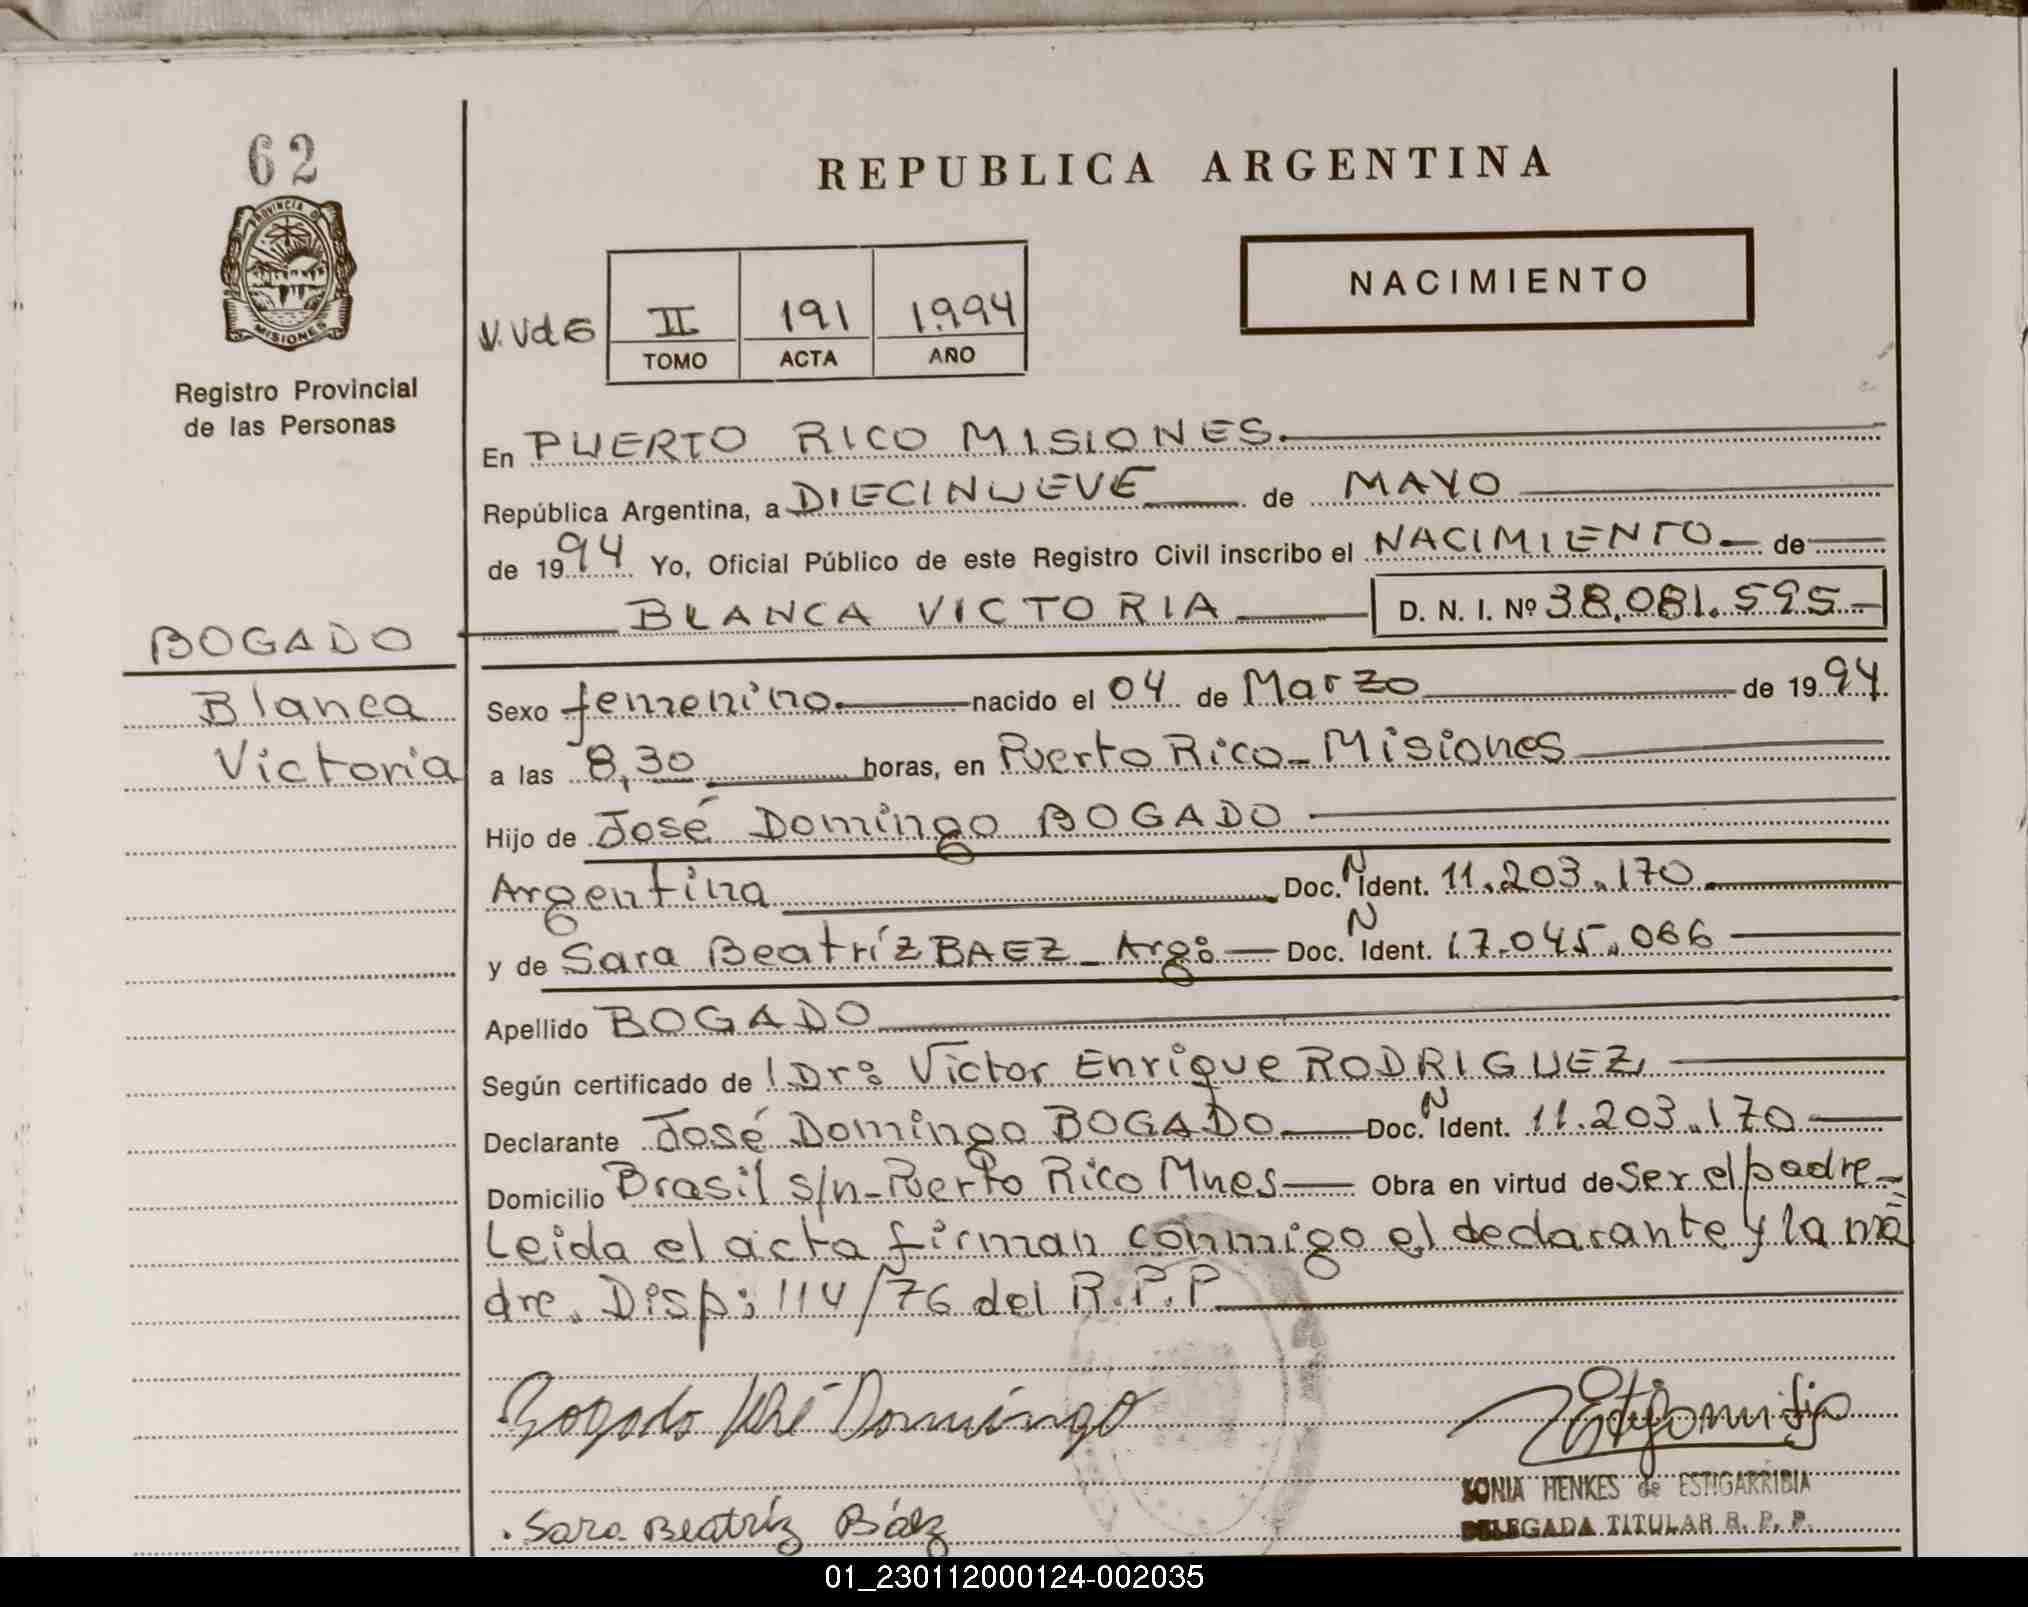 62
PROVINCIA D
MISIONES
Registro Provincial
de las Personas
REPUBLICA ARGENTINA
NACIMIENTO
V.VdG II 191 1994
TOMO ACTA AÑO
En PUERTO RICO MISIONES.
República Argentina, a DIECINUEVE de MAYO
de 1994 Yo, Oficial Público de este Registro Civil inscribo el NACIMIENTO de
BLANCA VICTORIA D. N. I. Nº 38.081.595.-
BOGADO
Blanca
Victoria
Sexo femenino nacido el 04 de Marzo de 1994.
a las 8,30 horas, en Puerto Rico - Misiones
Hijo de José Domingo BOGADO
Argentina Doc. N Ident. 11.203.170
y de Sara Beatríz BAEZ - Arg: Doc. N Ident. 17.045.066
Apellido BOGADO
Según certificado de Dr: Victor Enrique RODRIGUEZ,
Declarante José Domingo BOGADO Doc. N Ident. 11.203.170
Domicilio Brasil s/n - Puerto Rico Mnes Obra en virtud de ser el padre -
Leida el acta firman conmigo el declarante y la ma
dre. Disp: 114/76 del R.P.P
Bogado José Domingo
Sara Beatríz Báez
SONIA HENKES de ESTIGARRIBIA
DELEGADA TITULAR R. P. P.
01_230112000124-002035